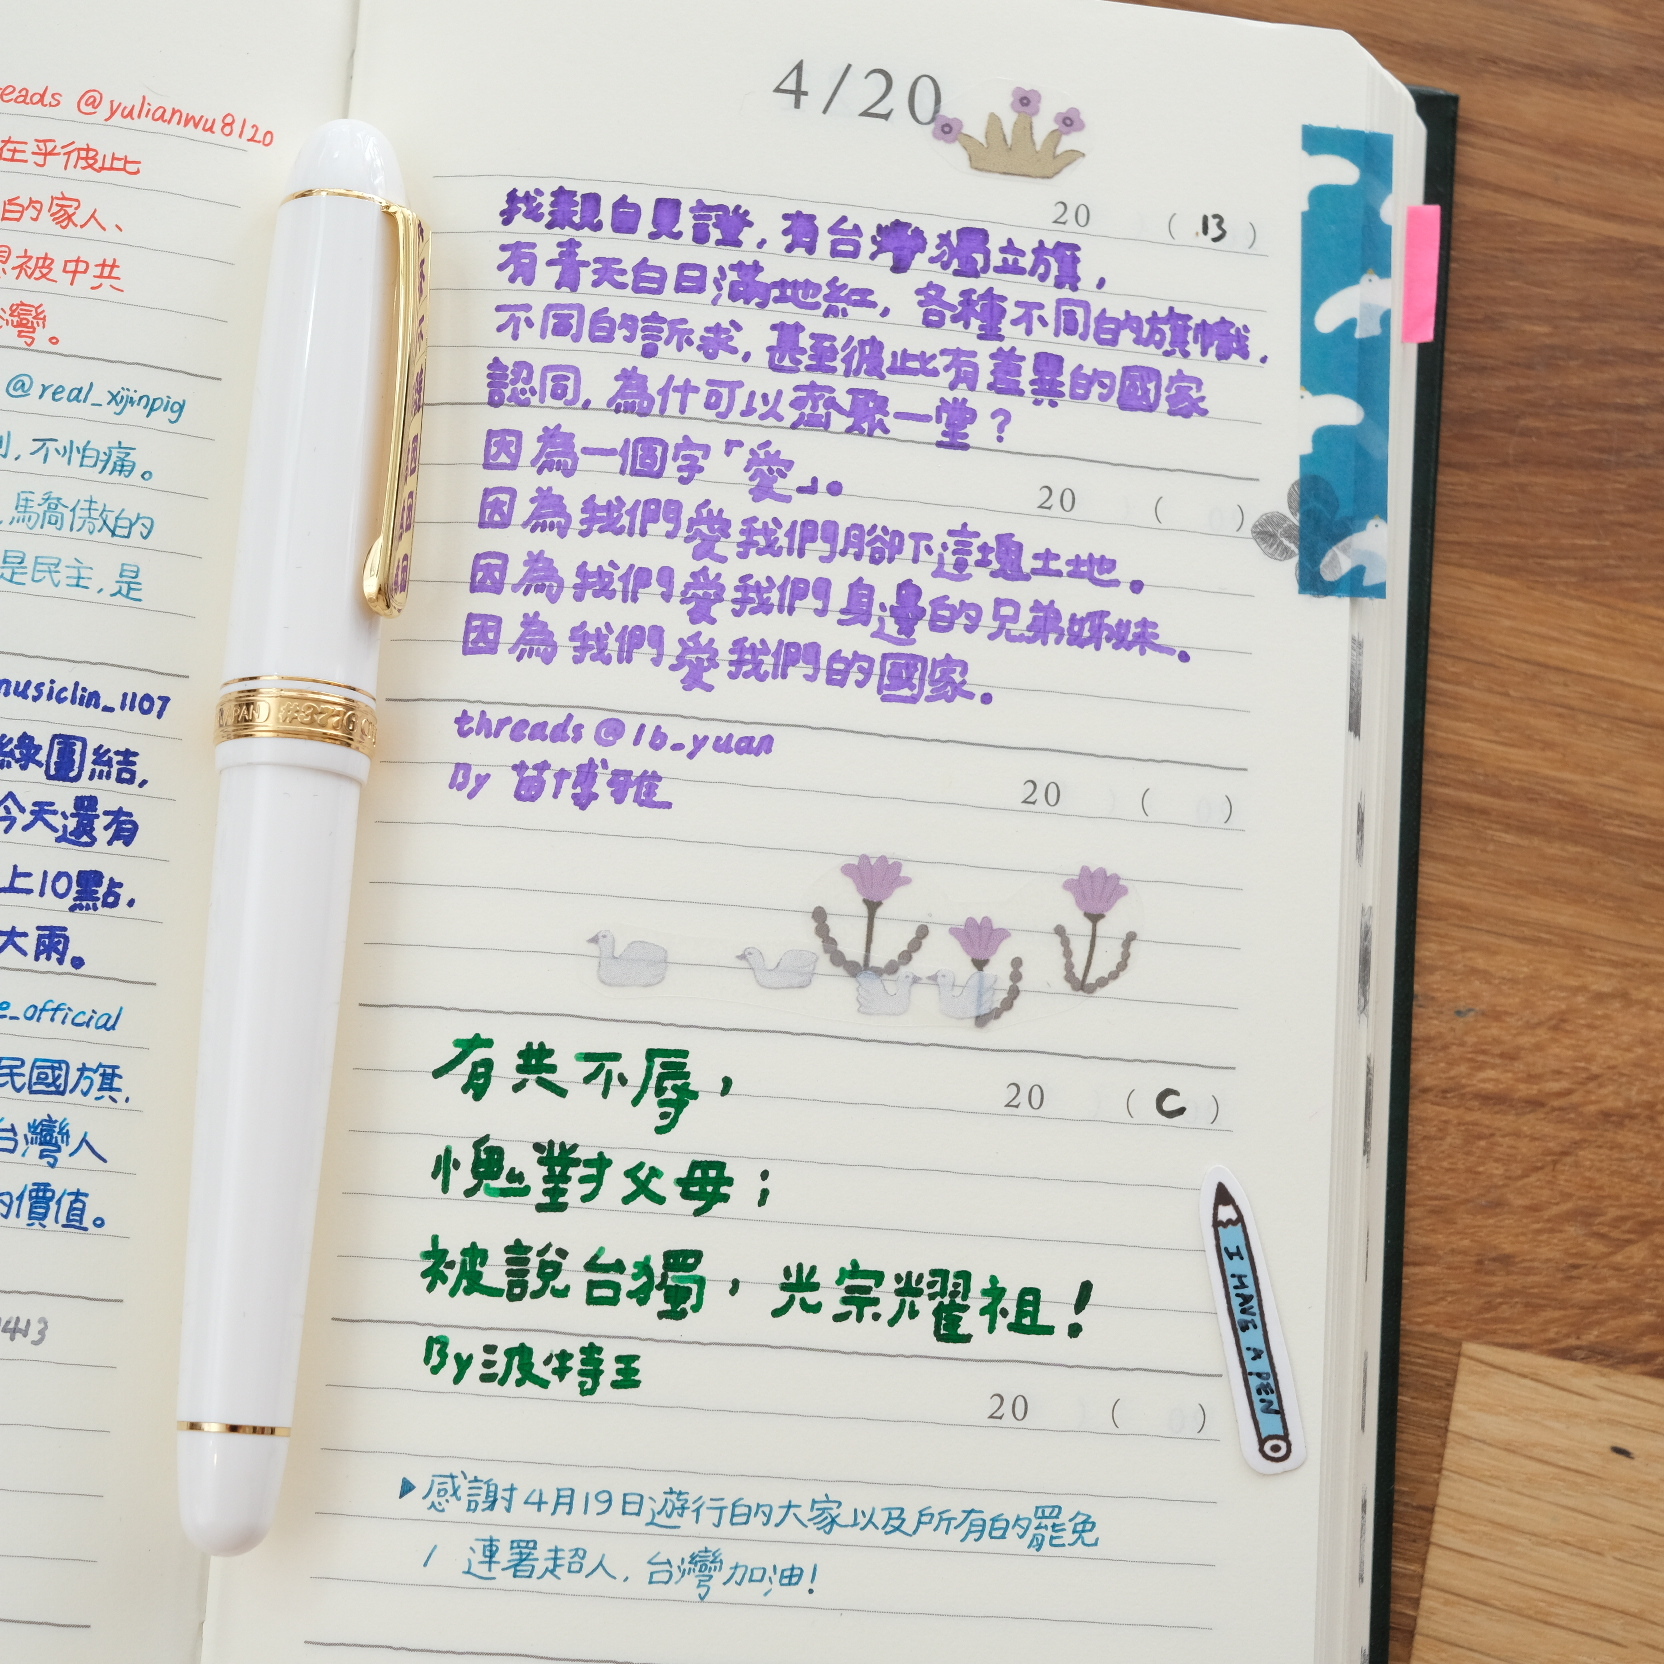 reads @yulianwu8120
在乎彼此
的家人、
想被中共
灣。
@real_xijinpig
，不怕痛。
馬驕傲的
是民主，是
musiclin_1107
綠團結，
今天還有
上10點，
大雨。
e_official
民國旗，
台灣人
的價值。
413
4/20
20 ( 13 )
我親自見證，有台灣獨立旗，
有青天白日滿地紅，各種不同的旗幟，
不同的訴求，甚至彼此有差異的國家
認同，為什可以齊聚一堂？
因為一個字「愛」。
20 ( )
因為我們愛我們腳下這塊土地。
因為我們愛我們身邊的兄弟姊妹。
因為我們愛我們的國家。
threads@lb_yuan
By 苗博雅
20 ( )
有共不辱，
20 ( C )
愧對父母；
被說台獨，光宗耀祖！
By 波特王
20 ( )
▶感謝4月19日遊行的大家以及所有的罷免
/ 連署超人，台灣加油！
I HAVE A PEN
JAPAN #3776